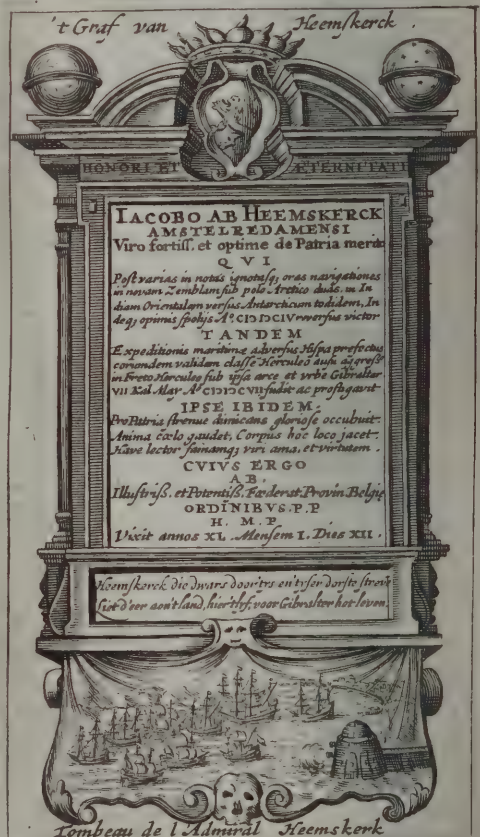 't Graf van Heemskerck.
HONORI ET ÆTERNITATI
IACOBO AB HEEMSKERCK
AMSTELREDAMENSI
Viro fortiss. et optime de Patria merito
QVI
Post varias in notas ignotasq; oras navigationes
in novam Zemblam sub polo Arctico duas, in In
diam Orientalem versus Antarcticum todidem, In
deq; opimis spolijs Aº. CIƆIƆCIV reversus victor
TANDEM
Expeditionis maritimæ adversus Hispa prefectus
eorundem validam classē Herculeo ausu aggress
in Freto Herculeo sub ipsa arce et urbe Gibraltar
VII Kal. May Aº CIƆIƆCVII fudit ac profligavit
IPSE IBIDEM.
Pro Patria strenue dimicans gloriose occubuit.
Anima cœlo gaudet, Corpus hoc loco jacet.
Have lector famamq; viri ama, et virtutem.
CVIVS ERGO
AB.
Illustriss. et Potentiss. Fœderat. Provin. Belgię
ORDINIBVS. P.P
H. M. P
Vixit annos XL. Mensem I. Dies XII.
Heemskerck die dwars door ys en yser dorste streve
Liet d'eer aon't land, hier 't lyf, voor Gibralter het leven.
Tombeau de l Admiral Heemskerk